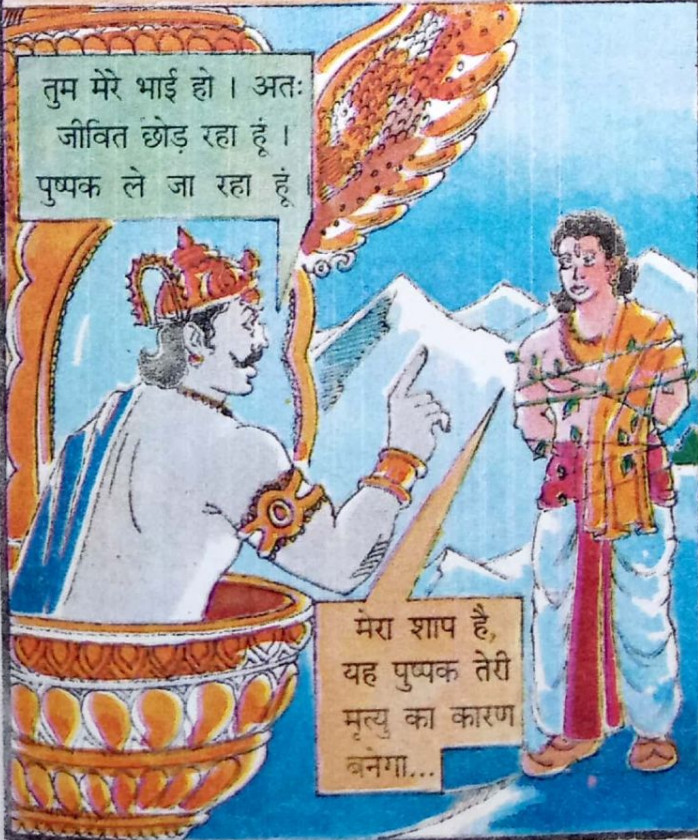 तुम मेरे भाई हो । अतः
जीवित छोड़ रहा हूं ।
पुष्पक ले जा रहा हूं ।
मेरा शाप है,
यह पुष्पक तेरी
मृत्यु का कारण
बनेगा...